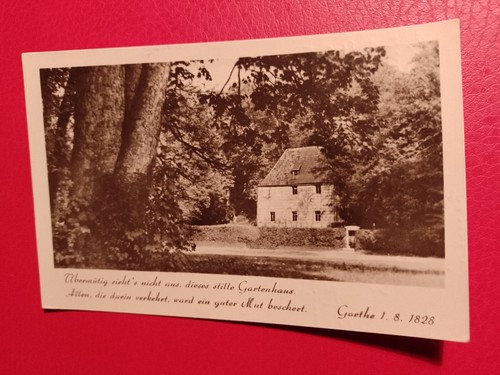 Übermütig sieht's nicht aus, dieses stille Gartenhaus.
Allen, die darin verkehrt, ward ein guter Mut beschert.
Goethe 1. 8. 1828